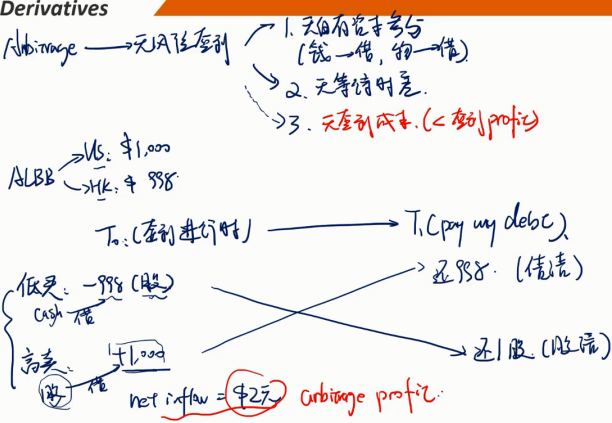 Derivatives
Arbitrage → 无风险套利
1. 无自有资本参与
(钱→借, 物→借)
2. 无等待时差.
3. 无套利成本. (< 套利profit)
ALBB
US: $1,000
HK: $ 998.
T0: (套利进行时) → T1 (pay my debt)
低买: -998 (股) → 还1股 (股债)
cash 借
高卖: +1,000 → 还998. (债清)
1股 借
net inflow = $2元 arbitrage profit.